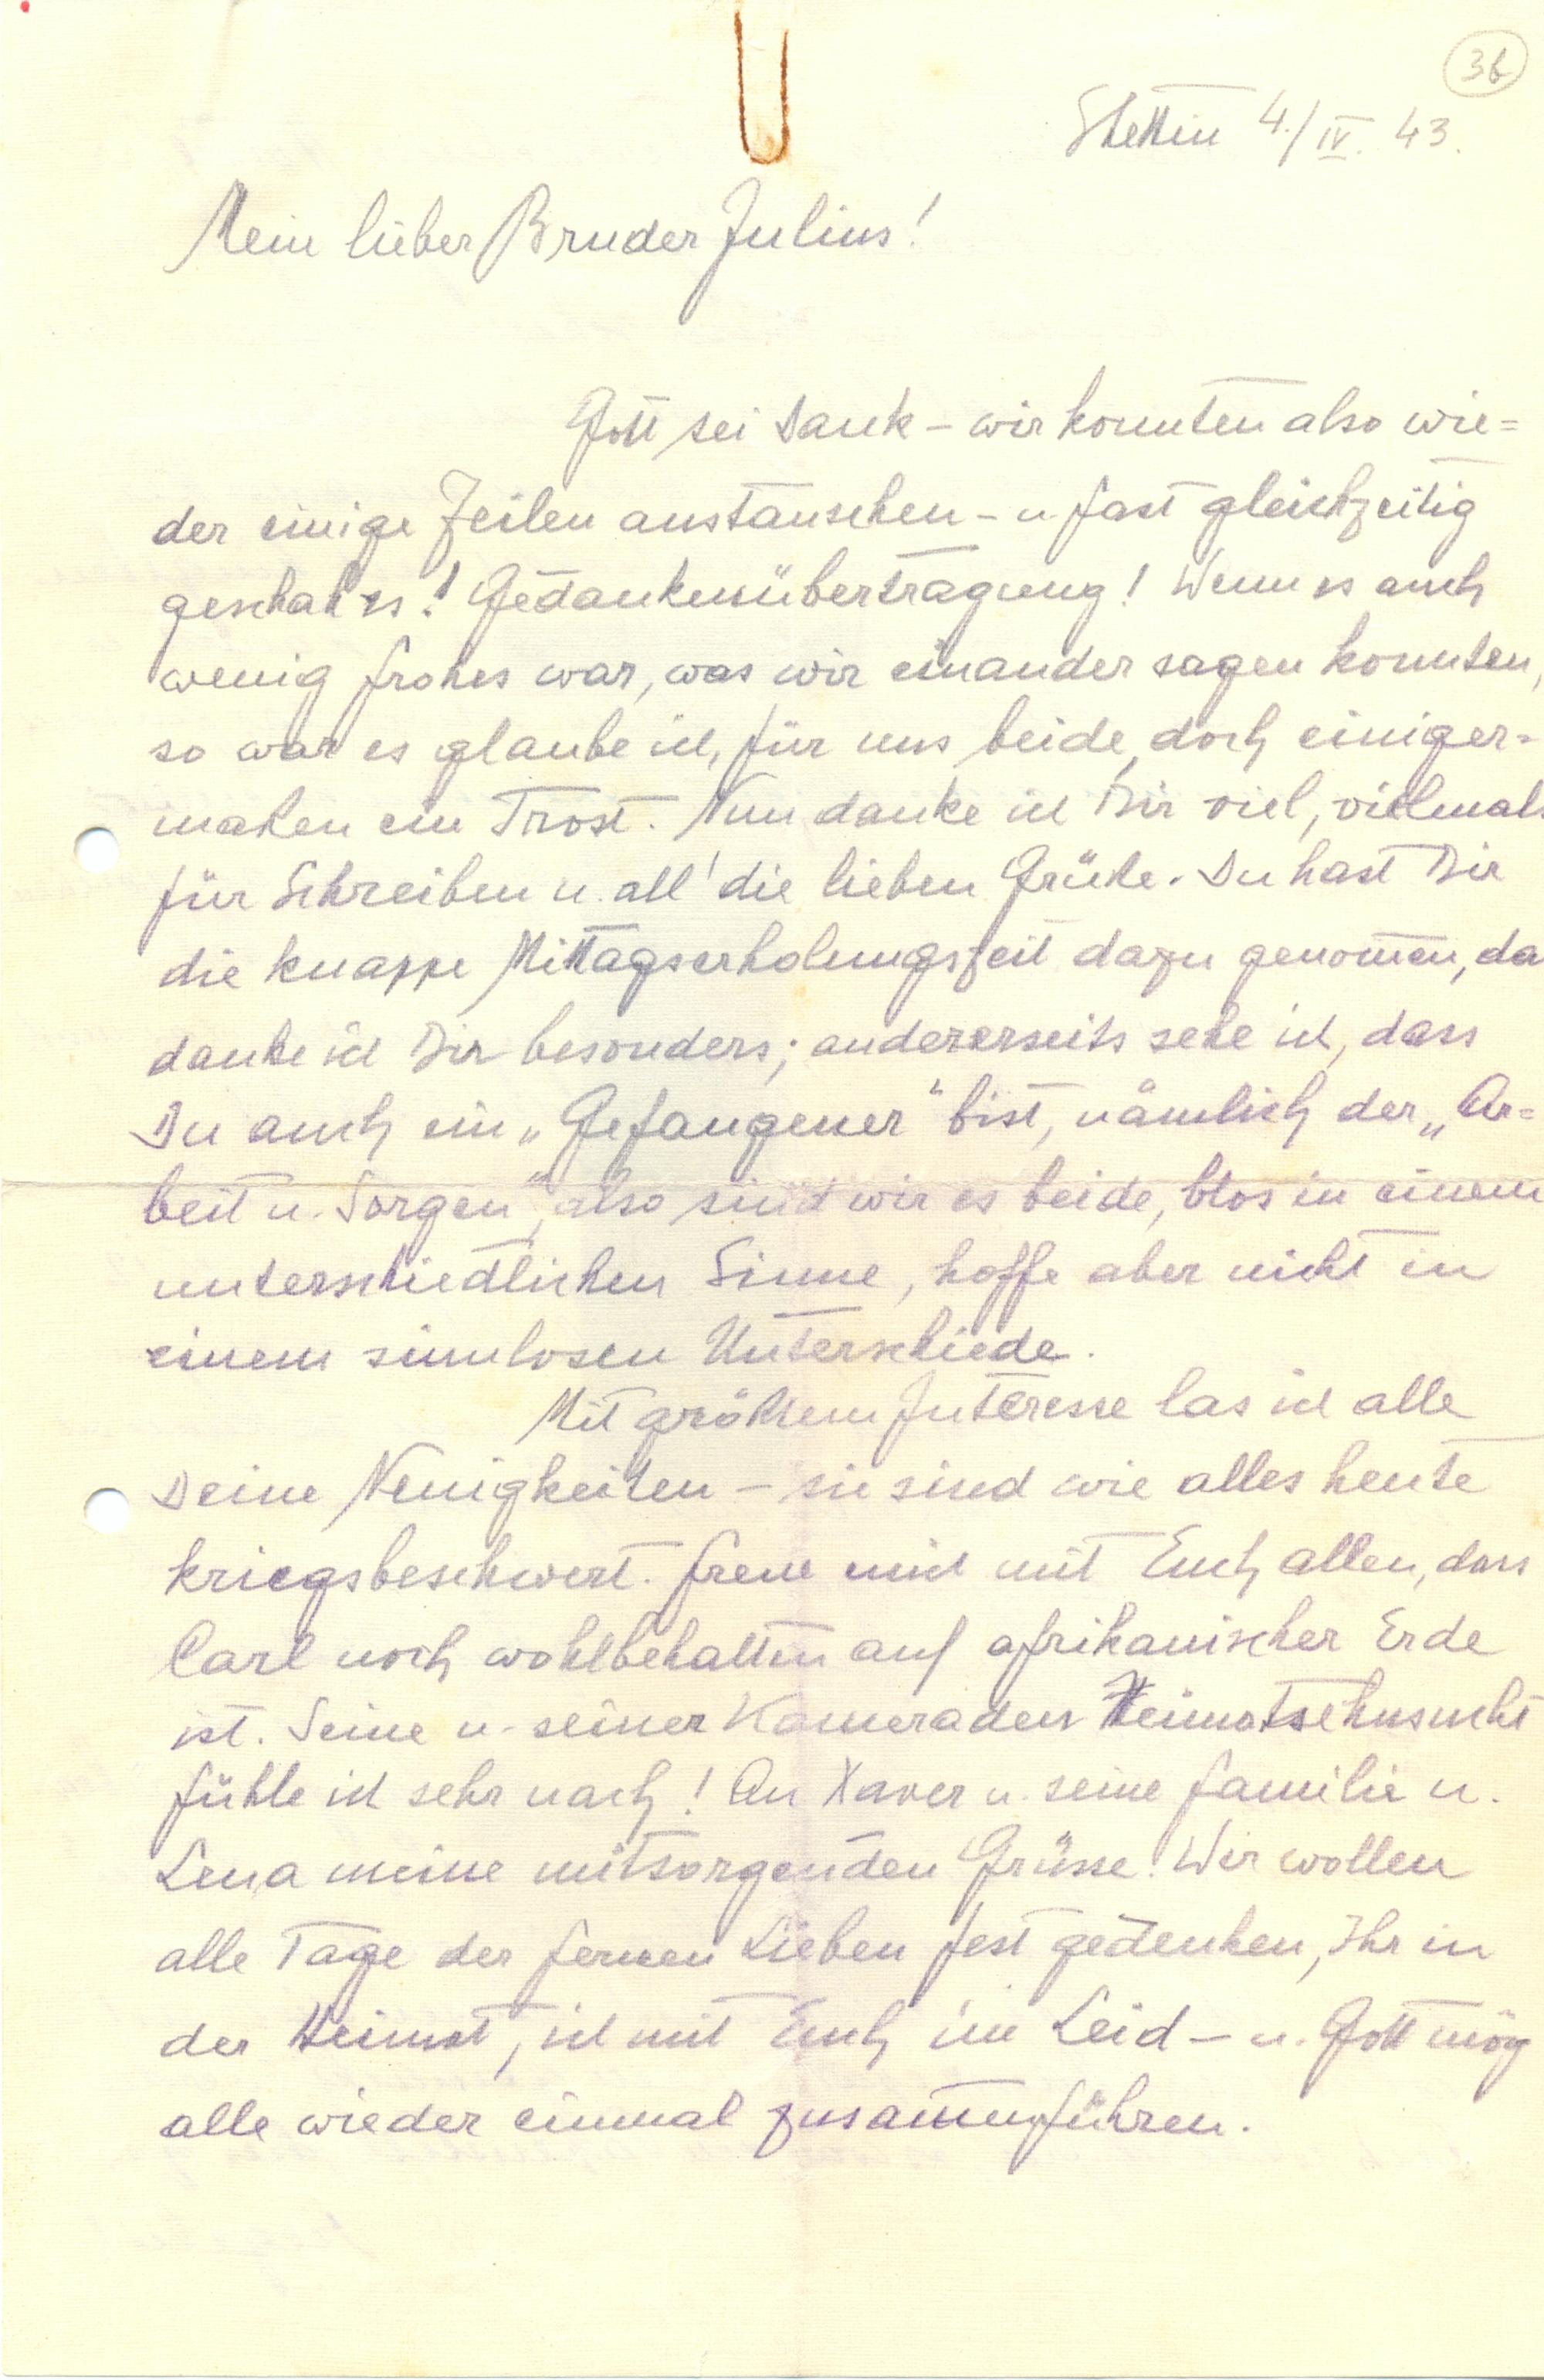 36
Stettin 4./IV. 43.
Mein lieber Bruder Julius!
Gott sei Dank – wir konnten also wie=
der einige Zeilen austauschen – u fast gleichzeitig
geschah es! Gedankenübertragung! Wenn es auch
wenig frohes war, was wir einander sagen konnten,
so war es glaube ich, für uns beide doch einiger=
maßen ein Trost. Nun danke ich Dir viel, vielmals
für Schreiben u. all' die lieben Grüße. Du hast Dir
die knappe Mittagserholungszeit dazu genom̅en, da
danke ich Dir besonders; andererseits sehe ich, dass
Du auch ein „Gefangener" bist, nämlich der „Ar=
beit u. Sorgen", also sind wir es beide, blos in einem
unterschiedlichen Sinne, hoffe aber nicht in
einem sinnlosen Unterschiede.
Mit größtem Interesse las ich alle
Deine Neuigkeiten – sie sind wie alles heute
kriegsbeschwert. Freue mich mit Euch allen, dass
Carl noch wohlbehalten auf afrikanischer Erde
ist. Seine u. seiner Kameraden Heimatsehnsucht
fühle ich sehr nach! An Xaver u. seine Familie u.
Lena meine mitsorgenden Grüsse! Wir wollen
alle Tage der fernen Lieben fest gedenken, Ihr in
der Heimat, ich mit Euch im Leid – u. Gott mög
alle wieder einmal zusam̅enführen.